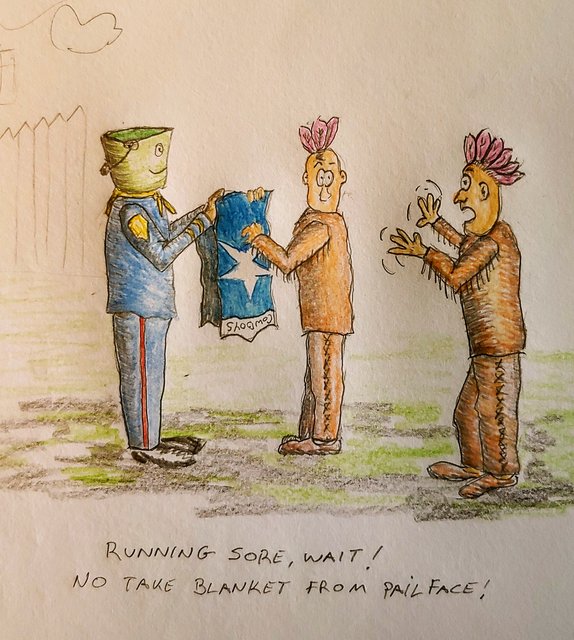 CowBoys
RUNNING SORE, WAIT!
NO TAKE BLANKET FROM PAILFACE!